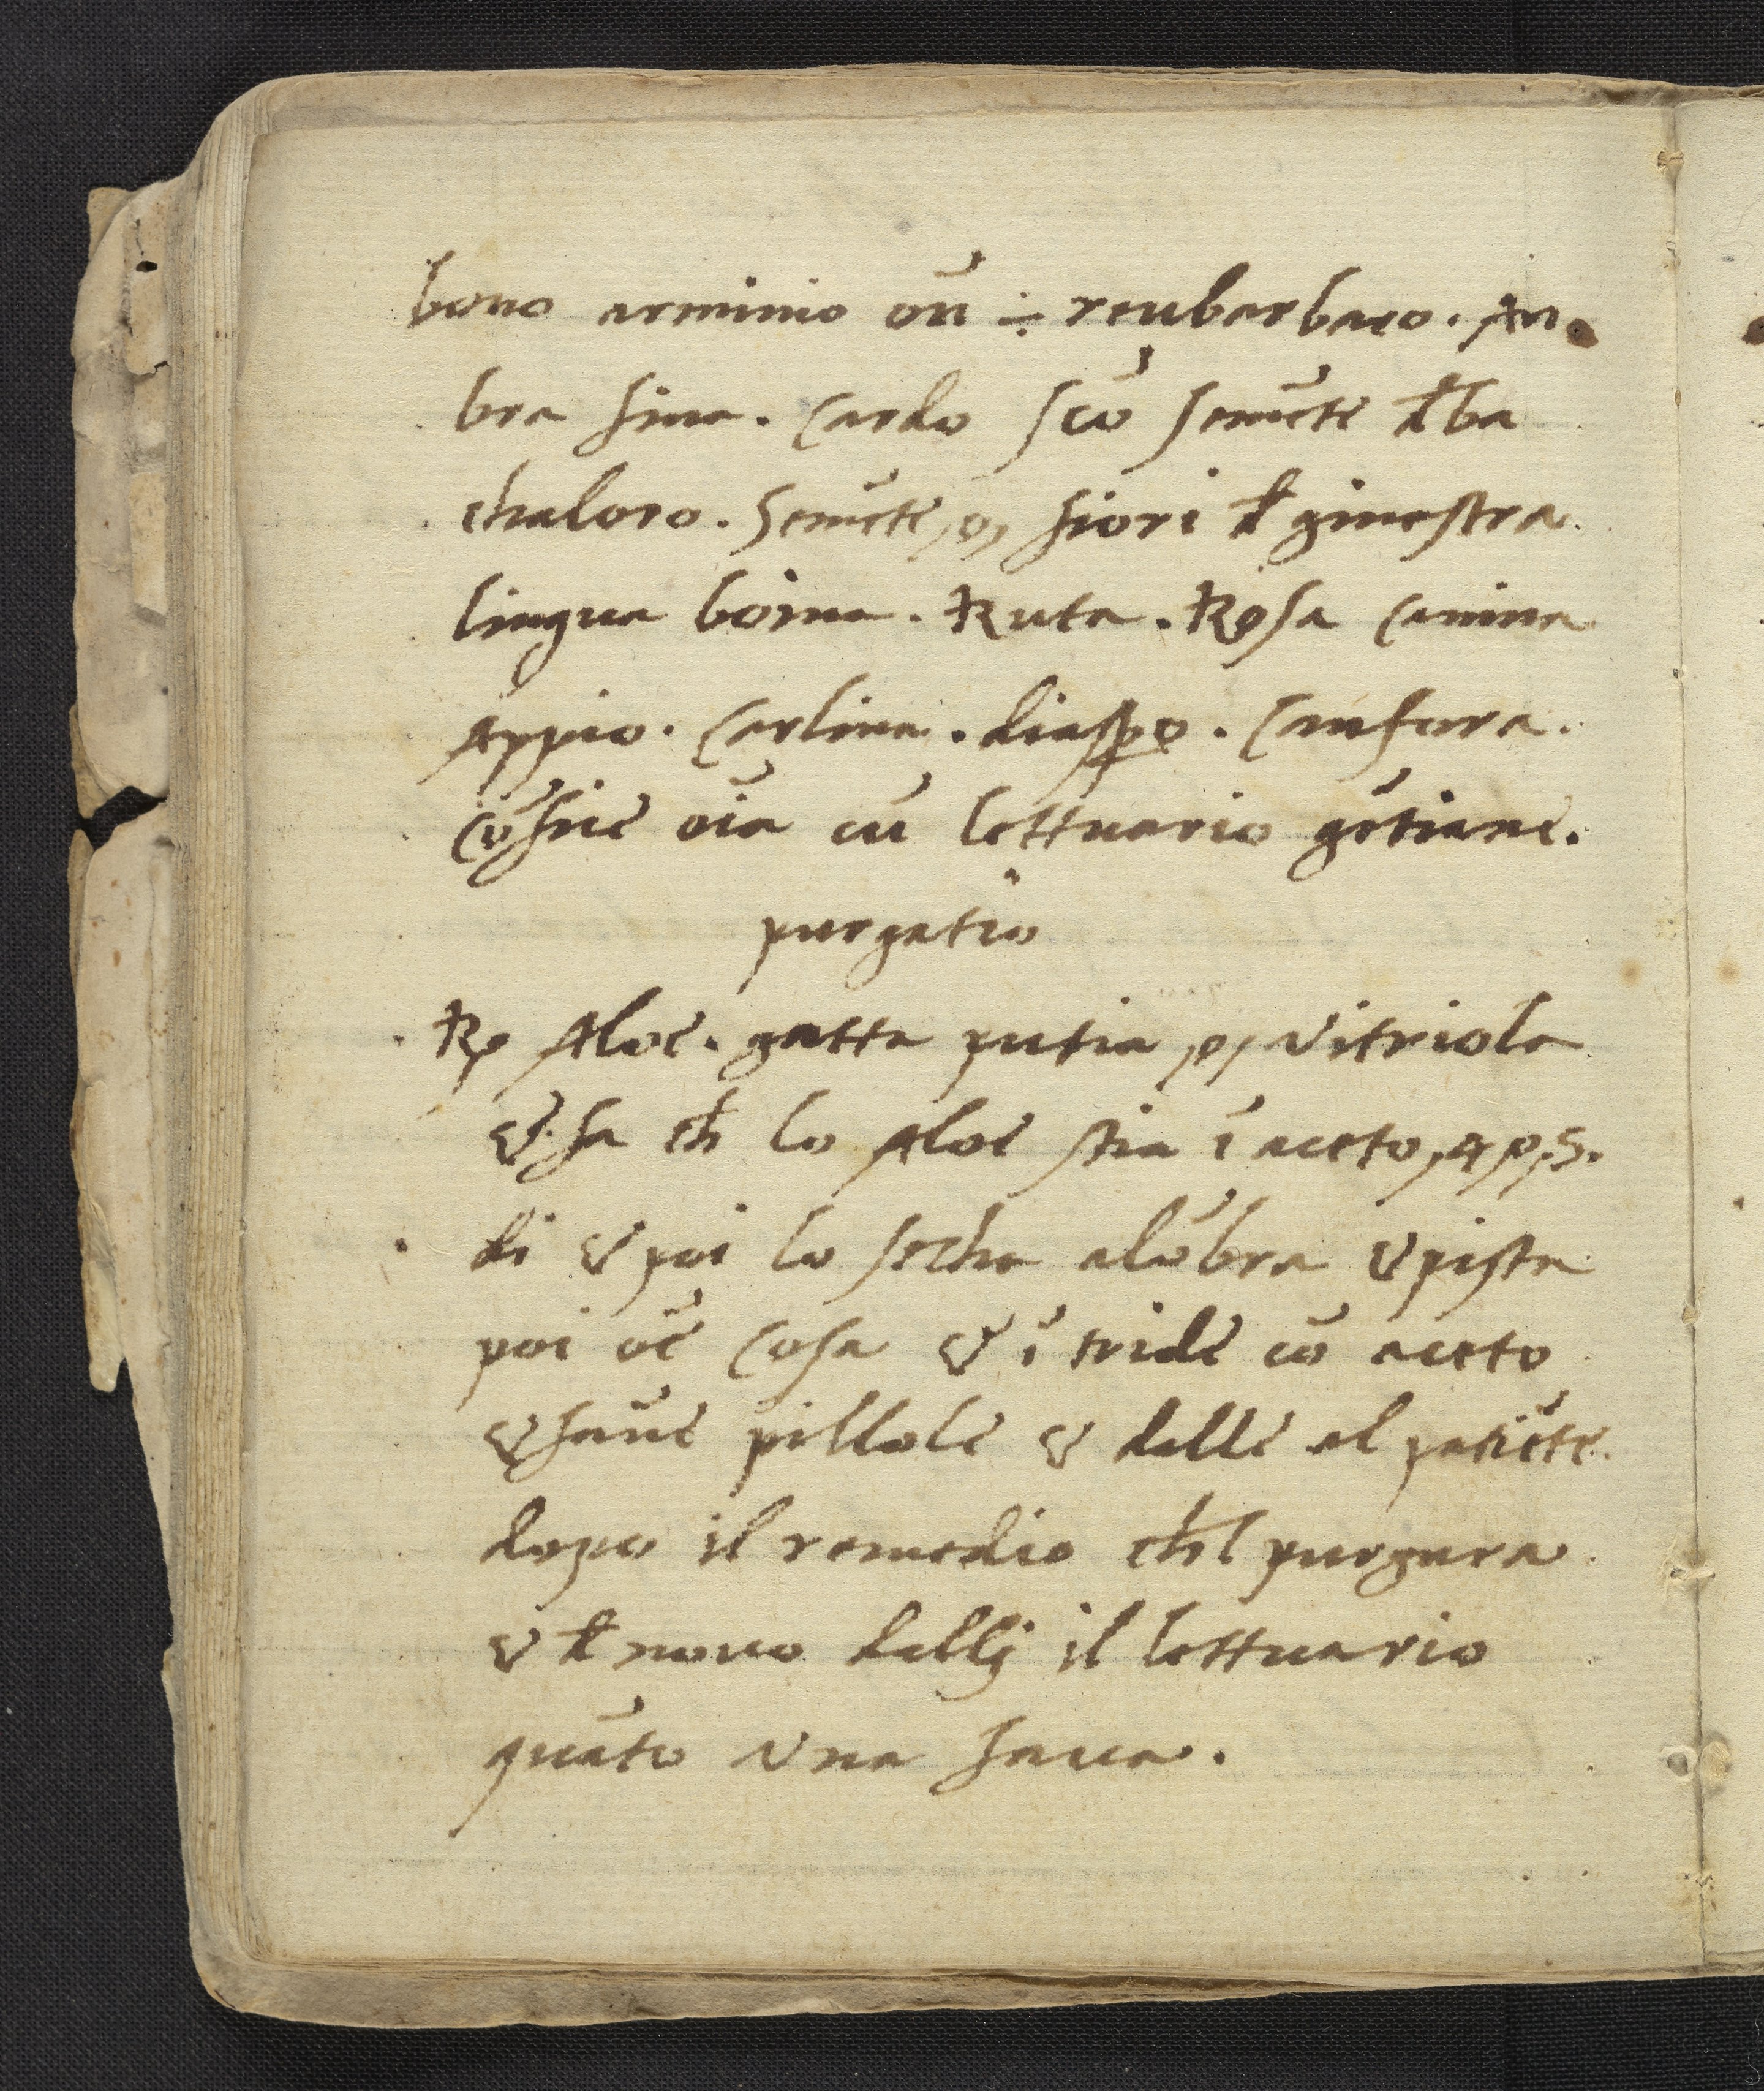 bono arminio on̄ ÷ reubarbaro. An
bra fina. Cardo sc̄o semēte đ ba
chaloro. Semēte, o, fiori đ ginestra
lingua boina. Ruta. Rosa canina
Appio. Carlina. diaspro. Canfora.
cōfice oīa cū lettuario gētiane.
purgatio
Rp Aloe. gatta putia, o, vitriola
& fa ch̄ lo Aloe stia ī aceto, 4, o, 5.
di & poi lo secha alōbra & pista
poi oē cosa & ītride cō aceto
& fanē pillole & dalle al patiēte
dopo il remedio ch̄l purgara
& đ novo dallj il lettuario
quāto una fava.